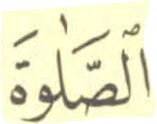 ٱلصَّلَوٰةَ